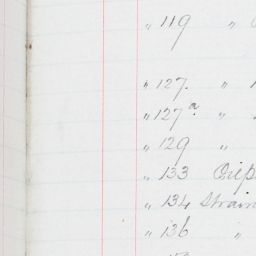 " 119 "
" 127. "
" 127a. "
" 129 "
" 133
" 134 Strain
" 136 "